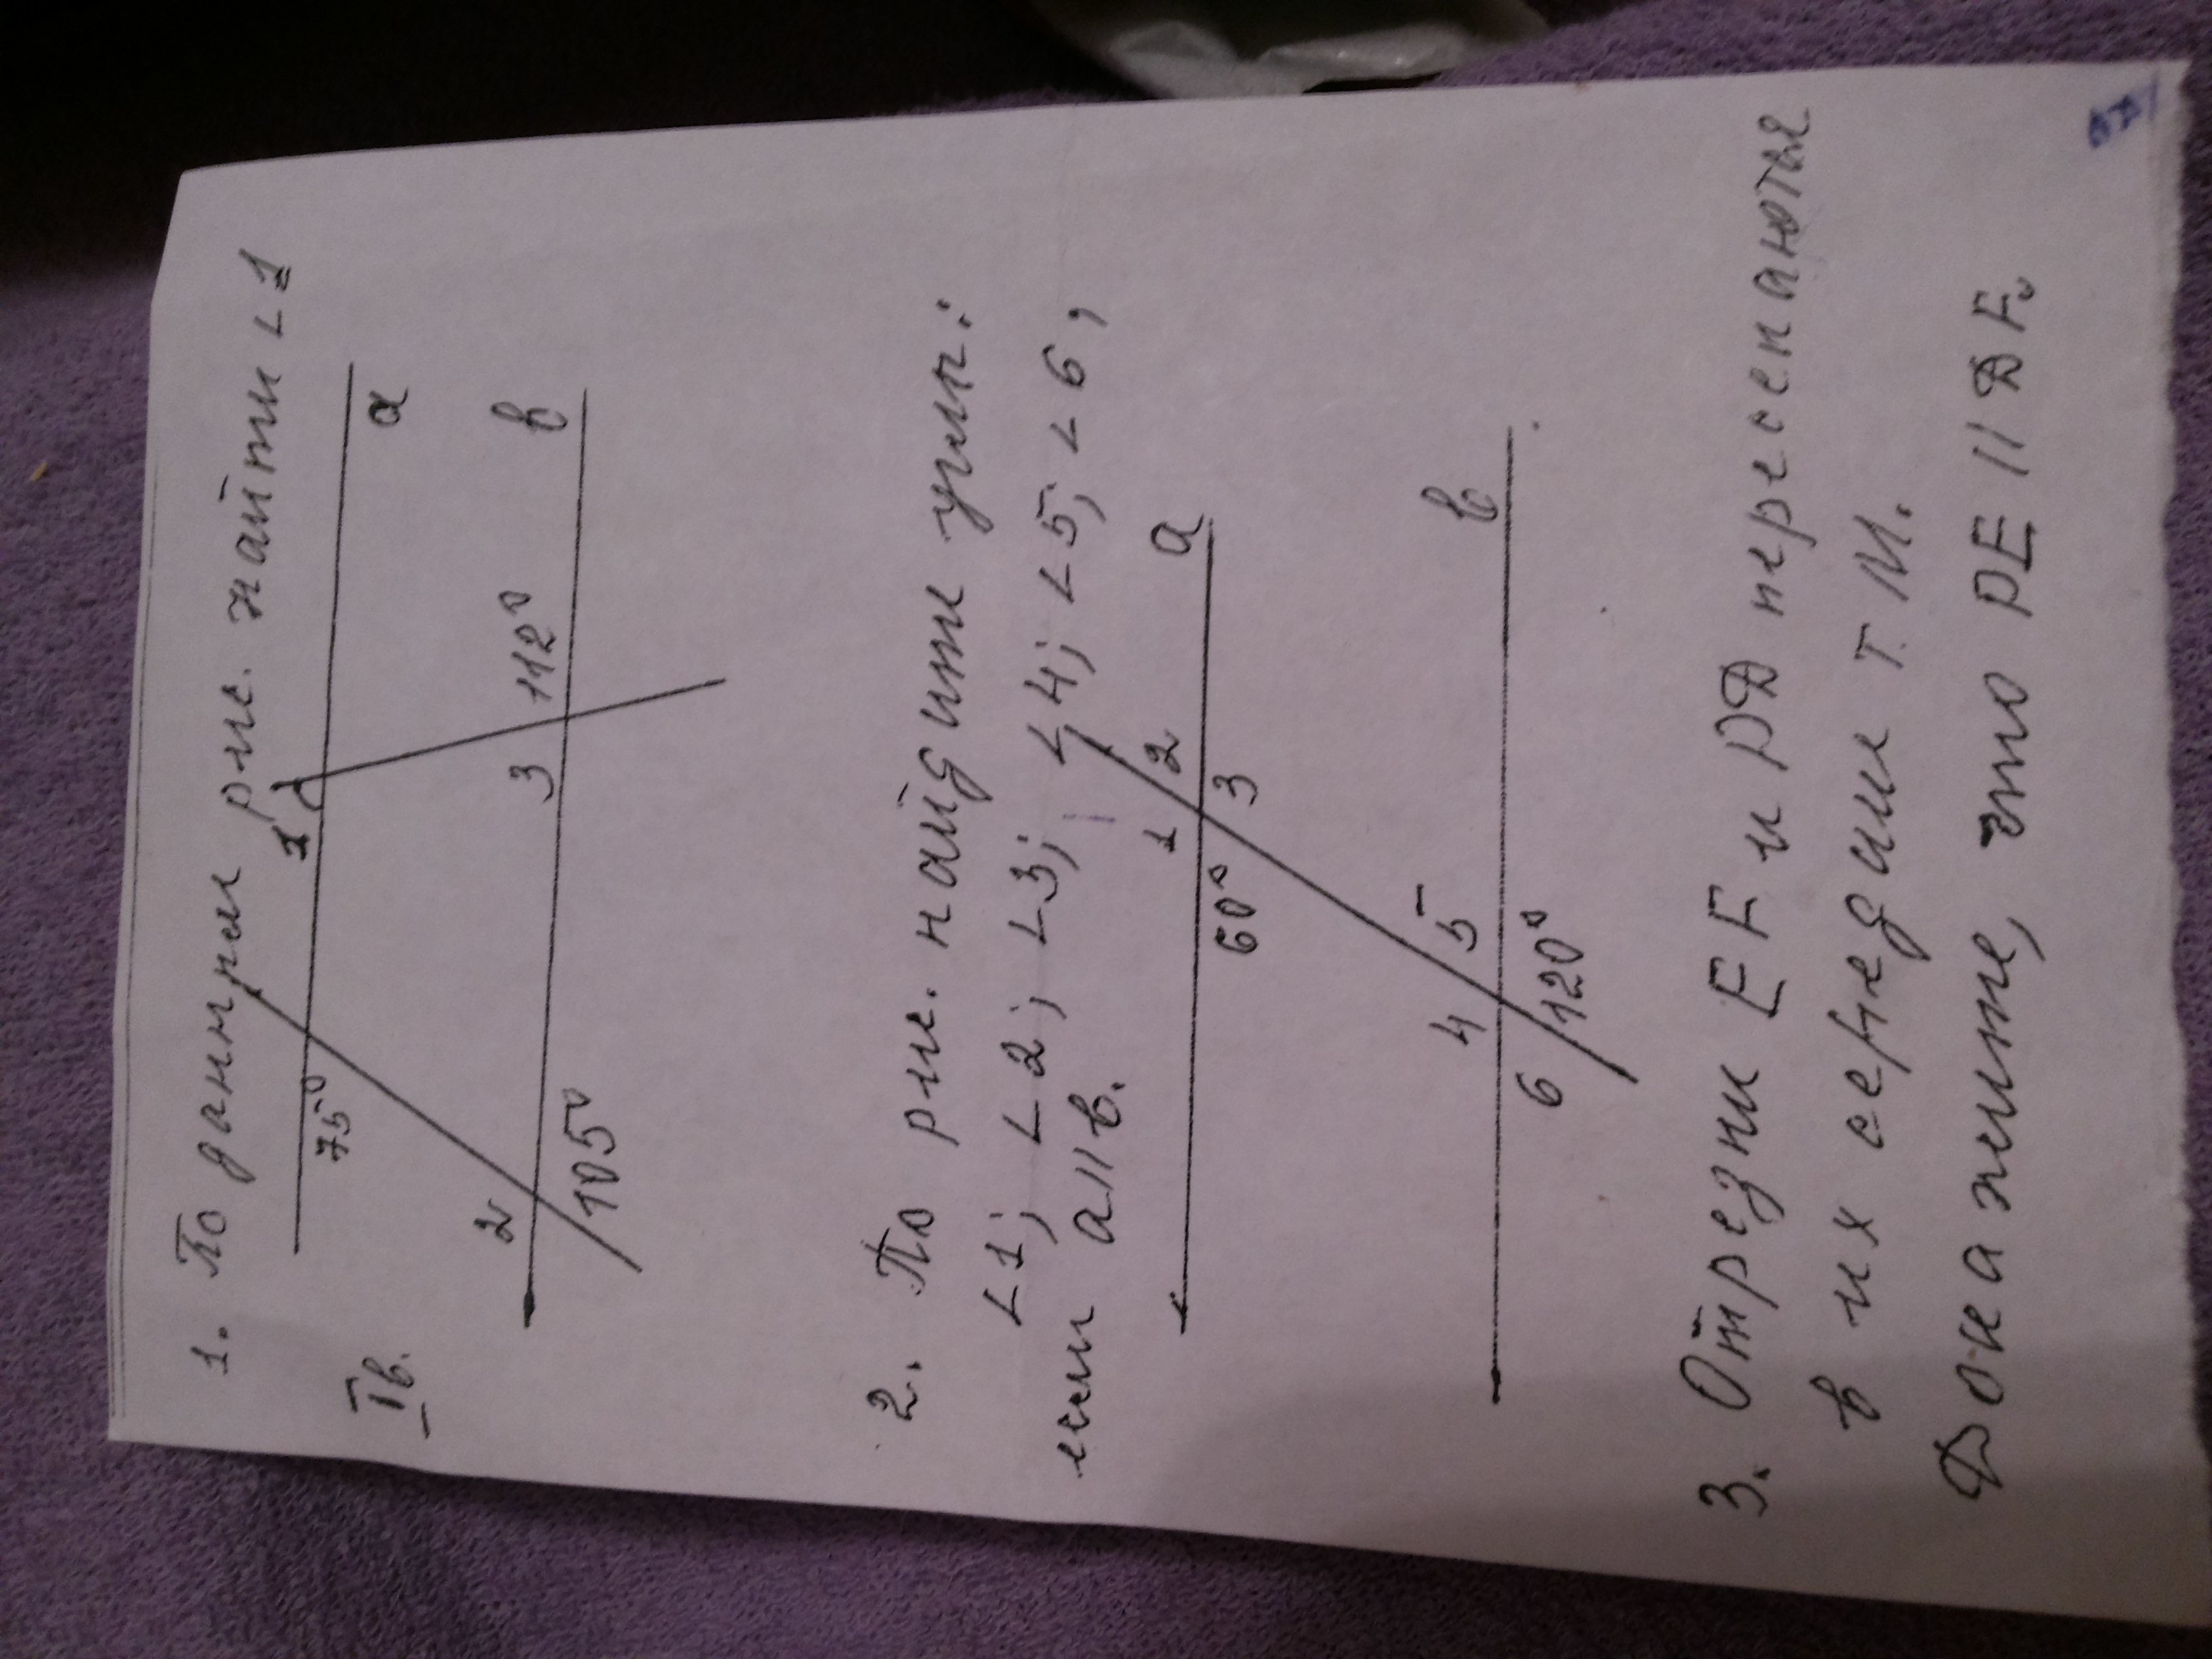 1. По данным рис. найти ∠1
Iв.
1
75°
a
2
3
112°
b
105°
2. По рис. найдите углы:
∠1; ∠2; ∠3; ∠4; ∠5; ∠6,
если a||b.
1
2
a
60°
3
4
5
b
6
120°
3. Отрезки EF и PD пересекаются
в их середине т. M.
Докажите, что PE || DF.